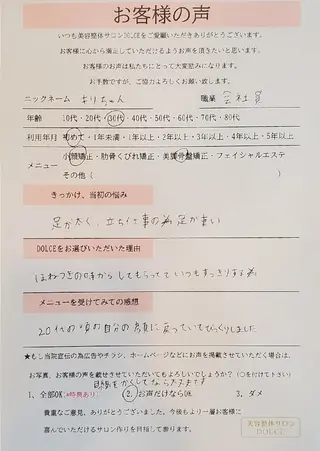 お客様の声
いつも美容整体サロンDOLCEをご愛顧いただきありがとうございます。
お客様に心から満足していただけるようお声を頂きたいと思います。
お客様のお声は私たちにとって大変励みになります。
お手数ですが、ご協力よろしくお願い致します。
ニックネーム きりちゃん 職業 会社員
年齢 10代・20代・30代・40代・50代・60代・70代・80代
利用年月 初めて・1年未満・1年以上・2年以上・3年以上・4年以上・5年以上
メニュー 小顔矯正・肋骨くびれ矯正・美脚骨盤矯正・フェイシャルエステ
その他（ ）
きっかけ、当初の悩み
足が太く、立ち仕事の為足が重い
DOLCEをお選びいただいた理由
はねつきの時からしてもらっていつもすっきりする為
メニューを受けてみての感想
20代の頃の自分の顔に戻っていてびっくりしました
★もし当院宣伝の為広告やチラシ、ホームページなどにお声を掲載させていただく場合は、
お写真、お客様の声を載せさせていただいてもよろしいでしょうか？（○を付けて下さい）
目線をかくしてなら大丈夫です
1. 全部OK ★特典あり! 2. お声だけならOK 3. ダメ
貴重なご意見、ありがとうございました。今後もより一層お客様に
喜んでいただけるサロン作りを目指して参ります。
美容整体サロン
DOLCE